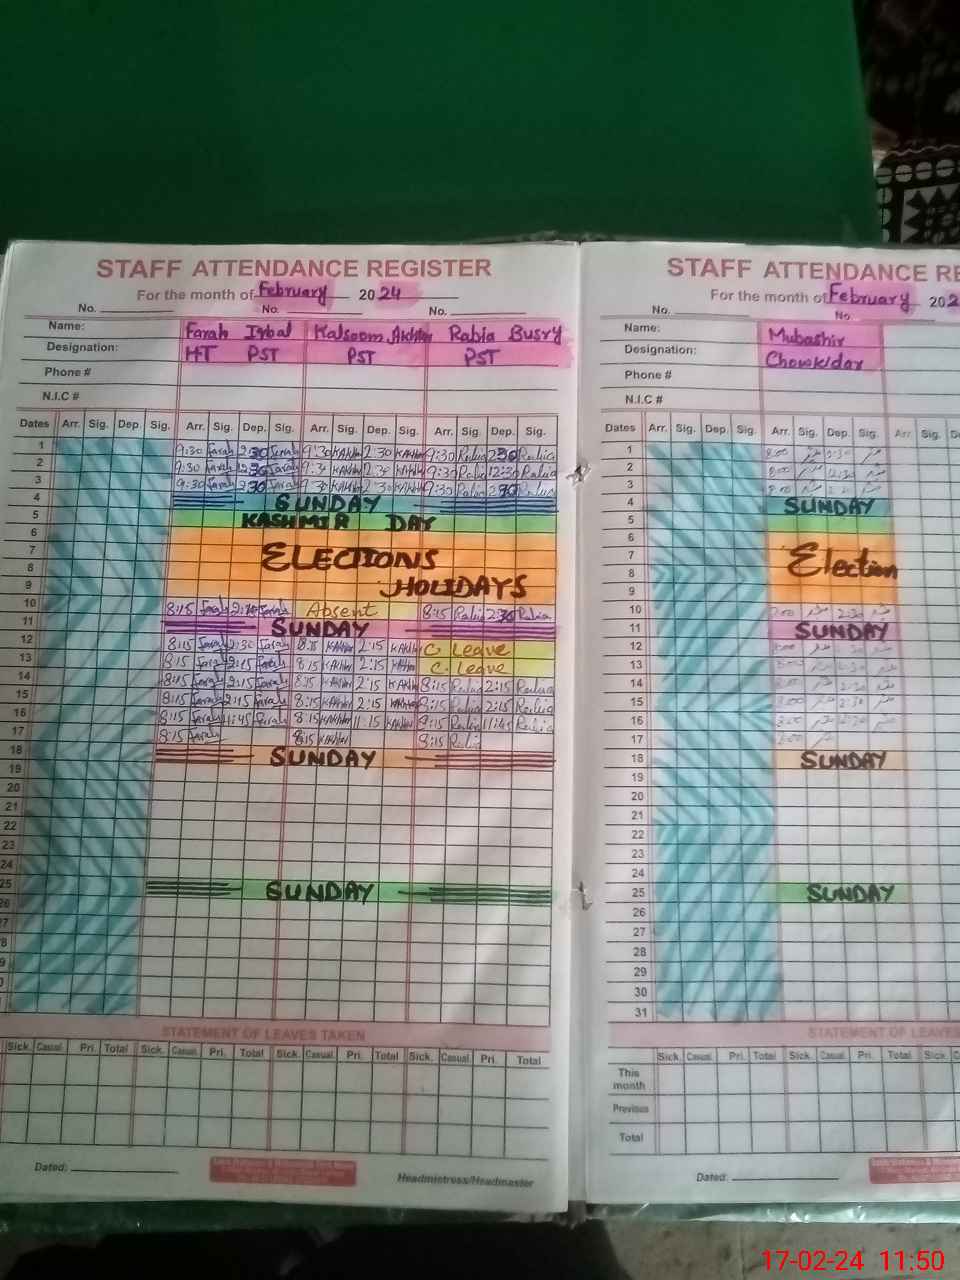 STAFF ATTENDANCE REGISTER
For the month of February 2024
No. No. No.
Name: Farah Iqbal Kalsoom Akhtar Rabia Busry
Designation: HT PST PST PST
Phone #
N.I.C #
Dates Arr. Sig. Dep. Sig. Arr. Sig. Dep. Sig. Arr. Sig. Dep. Sig. Arr. Sig. Dep. Sig.
1 9:30 Farah 2:30 Farah 9:30 KAkhtar 2:30 KAkhtar 9:30 Rabia 2:30 Rabia
2 9:30 Farah 9:30 Rabia 12:30 Rabia
3 9:30 Farah 2:30 Farah 9:30 KAkhtar 2:30 KAkhtar 9:30 Rabia 2:30 Rabia
4 SUNDAY
5 KASHMIR DAY
6
7 ELECTIONS
8 HOLIDAYS
9
10 8:15 Farah Farah Absent 8:15 Rabia 2:30 Rabia
11 SUNDAY
12 8:15 Farah 2:30 Farah 8:15 KAkhtar 2:15 KAkhtar C. Leave
13 8:15 Farah 2:15 Farah 8:15 KAkhtar 2:15 KAkhtar C. Leave
14 8:15 Farah 2:15 Farah 8:15 KAkhtar 2:15 KAkhtar 8:15 Rabia 2:15 Rabia
15 8:15 Farah 2:15 Farah 8:15 KAkhtar 2:15 KAkhtar 8:15 Rabia 2:15 Rabia
16 8:15 Farah 11:45 Farah 8:15 KAkhtar 11:15 KAkhtar Rabia 11:45 Rabia
17 8:15 Farah 8:15 KAkhtar 8:15 Rabia
18 SUNDAY
19
20
21
22
23
24
25 SUNDAY
26
27
28
STATEMENT OF LEAVES TAKEN
Sick. Casual. Pri. Total Sick. Casual. Pri. Total Sick. Casual. Pri. Total Sick. Casual. Pri. Total
Dated: Headmistress/Headmaster
STAFF ATTENDANCE RE
For the month of February 202
No. No.
Name: Mubashir
Designation: Chowkidar
Phone #
N.I.C #
Dates Arr. Sig. Dep. Sig. Arr. Sig. Dep. Sig. Arr Sig. De
1 8:00 2:30
2 8:00 12:30
3 8:00
4 SUNDAY
5
6
7 Election
8
9
10 8:00 2:30
11 SUNDAY
12 8:00 2:30
13 8:00 2:30
14 8:00 2:30
15 8:00 2:30
16 8:00
17 8:00
18 SUNDAY
19
20
21
22
23
24
25 SUNDAY
26
27
28
29
30
31
STATEMENT OF LEAVES
Sick. Casual. Pri. Total Sick. Casual. Pri. Total Sick. C
This month
Previous
Total
Dated:
17-02-24 11:50